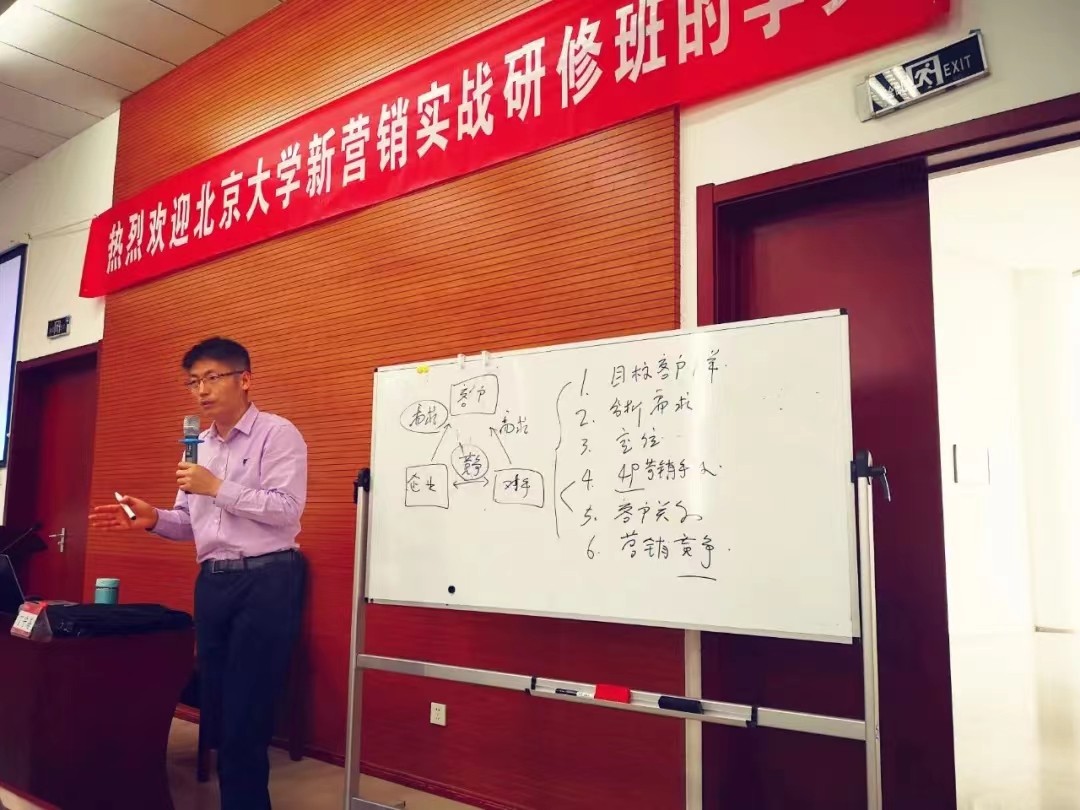 热烈欢迎北京大学新营销实战研修班的学
EXIT
客户
需求
需求
竞争
企业
对手
1. 目标客户群
2. 分析需求
3. 定位
4. 4P营销手
5. 客户关系
6. 营销竞争.